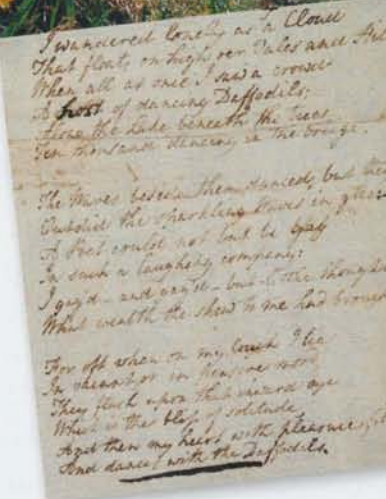 I wandered lonely as a Cloud
That floats on high o'er Vales and
When all at once I saw a crowd
A host of dancing Daffodils;
Along the Lake, beneath the trees,
Ten thousand dancing in the breeze.
The Waves beside them danced, but they
Outdid the sparkling Waves in glee:
A Poet could not but be gay
In such a laughing company:
I gaz'd - and gaz'd - but little thought
What wealth the shew to me had brought
For oft when on my couch I lie
In vacant or in pensive mood
They flash upon that inward eye
Which is the bliss of solitude
And then my heart with pleasure fills
And dances with the Daffodils.